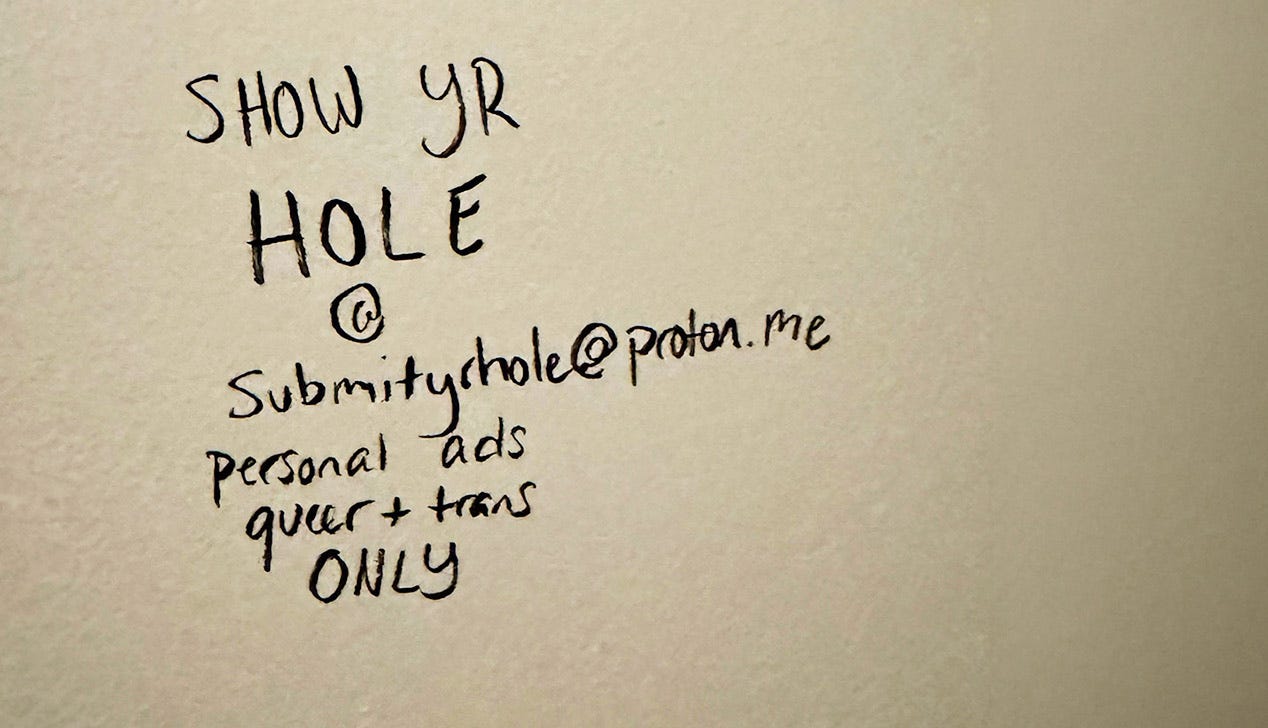 SHOW YR
HOLE
@
Submityrhole@proton.me
personal ads
queer + trans
ONLY